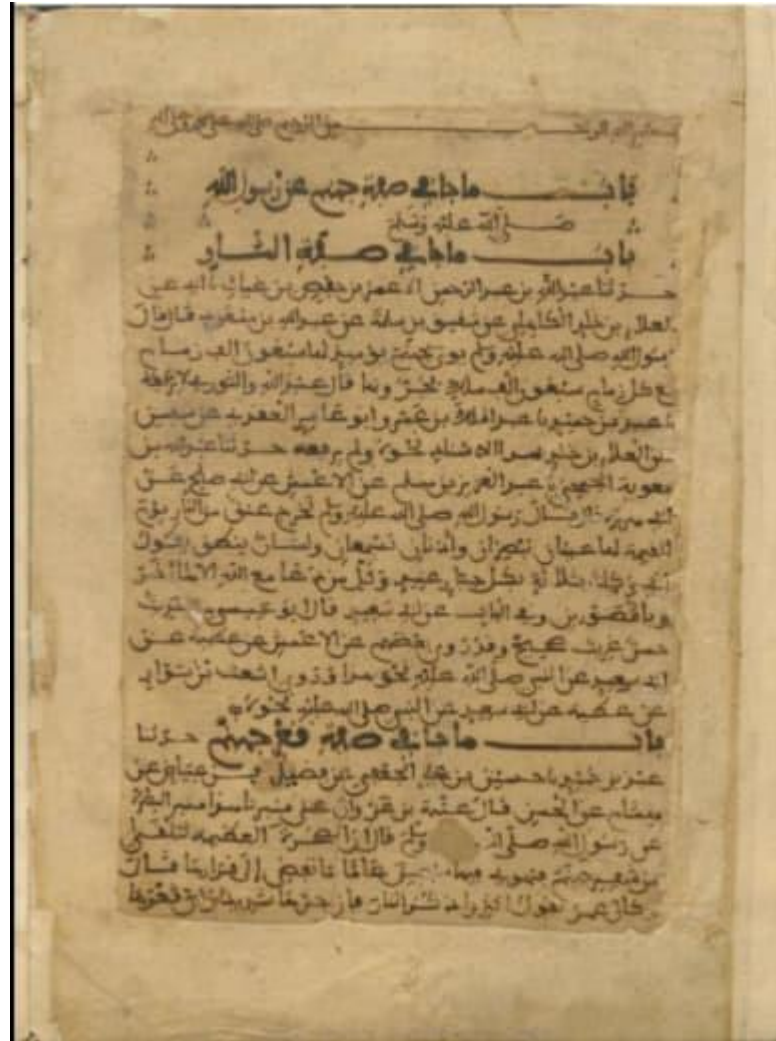 بسم الله الرحمن صلى الله على
باب ما جا في صفة جهنم عن رسول الله
صلى الله عليه وسلم
باب ما جا في صفة النار
حدثنا عبد الله بن عبد الرحمن انا عمر بن حفص بن غياث انا ابي عن
العلاء بن خالد الكاهلي عن شقيق بن سلمة عن عبد الله بن مسعود قال قال
رسول الله صلى الله عليه وسلم يوتى بجهنم يوميذ لها سبعون الف زمام
مع كل زمام سبعون الف ملك يجرونها قال عبد الله والثوري لا يرفعه
نا عبد بن حميد نا عبد الملك بن عمرو ابو عامر العقدي عن سفين
عن العلاء بن خالد بهذا الاسناد نحوه ولم يرفعه حدثنا عبد الله بن
معوية الجمحي نا عبد العزيز بن مسلم عن الاعمش عن ابي صالح عن
ابي هريرة قال قال رسول الله صلى الله عليه وسلم تخرج عنق من النار يوم
القيمة لها عينان تبصران واذنان تسمعان ولسان ينطق يقول
اني وكلت بثلاثة بكل جبار عنيد وكل من دعا مع الله الاها اخر
وبالمصورين وفي الباب عن ابي سعيد قال ابو عيسى حديث
حسن غريب صحيح وقد روى بعضهم عن الاعمش عن عطية عن
ابي سعيد عن النبي صلى الله عليه نحو هذا وروى اشعث بن سوار
عن عطية عن ابي سعيد عن النبي صلى الله عليه نحوه
باب ما جا في صفة قعر جهنم حدثنا
عبد بن حميد نا حسين بن علي الجعفي عن فضيل بن عياض عن
هشام عن الحسن قال قال عتبة بن غزوان على منبرنا هذا منبر البصرة
عن رسول الله صلى الله وسلم قال ان الصخرة العظيمة لتلقى
من شفير جهنم فتهوي فيها سبعين عاما ما تفضي الى قرارها قال
وكان عمر يقول اكثروا ذكر النار فان حرها شديد وان قعرها